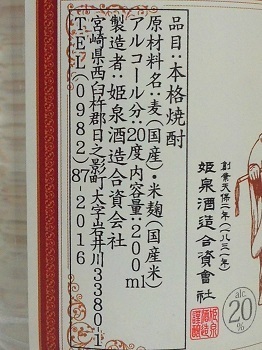 品目:本格焼酎
原材料名:麦(国産)・米麹(国産米)
アルコール分:20度 内容量:200ml
製造者:姫泉酒造合資会社
宮崎県西臼杵郡日之影町大字岩井川3380-1
TEL(0982)87-2016
創業天保二年(一八三一年)
姫泉酒造合資會社
alc
20%
姫泉
酒造
謹醸